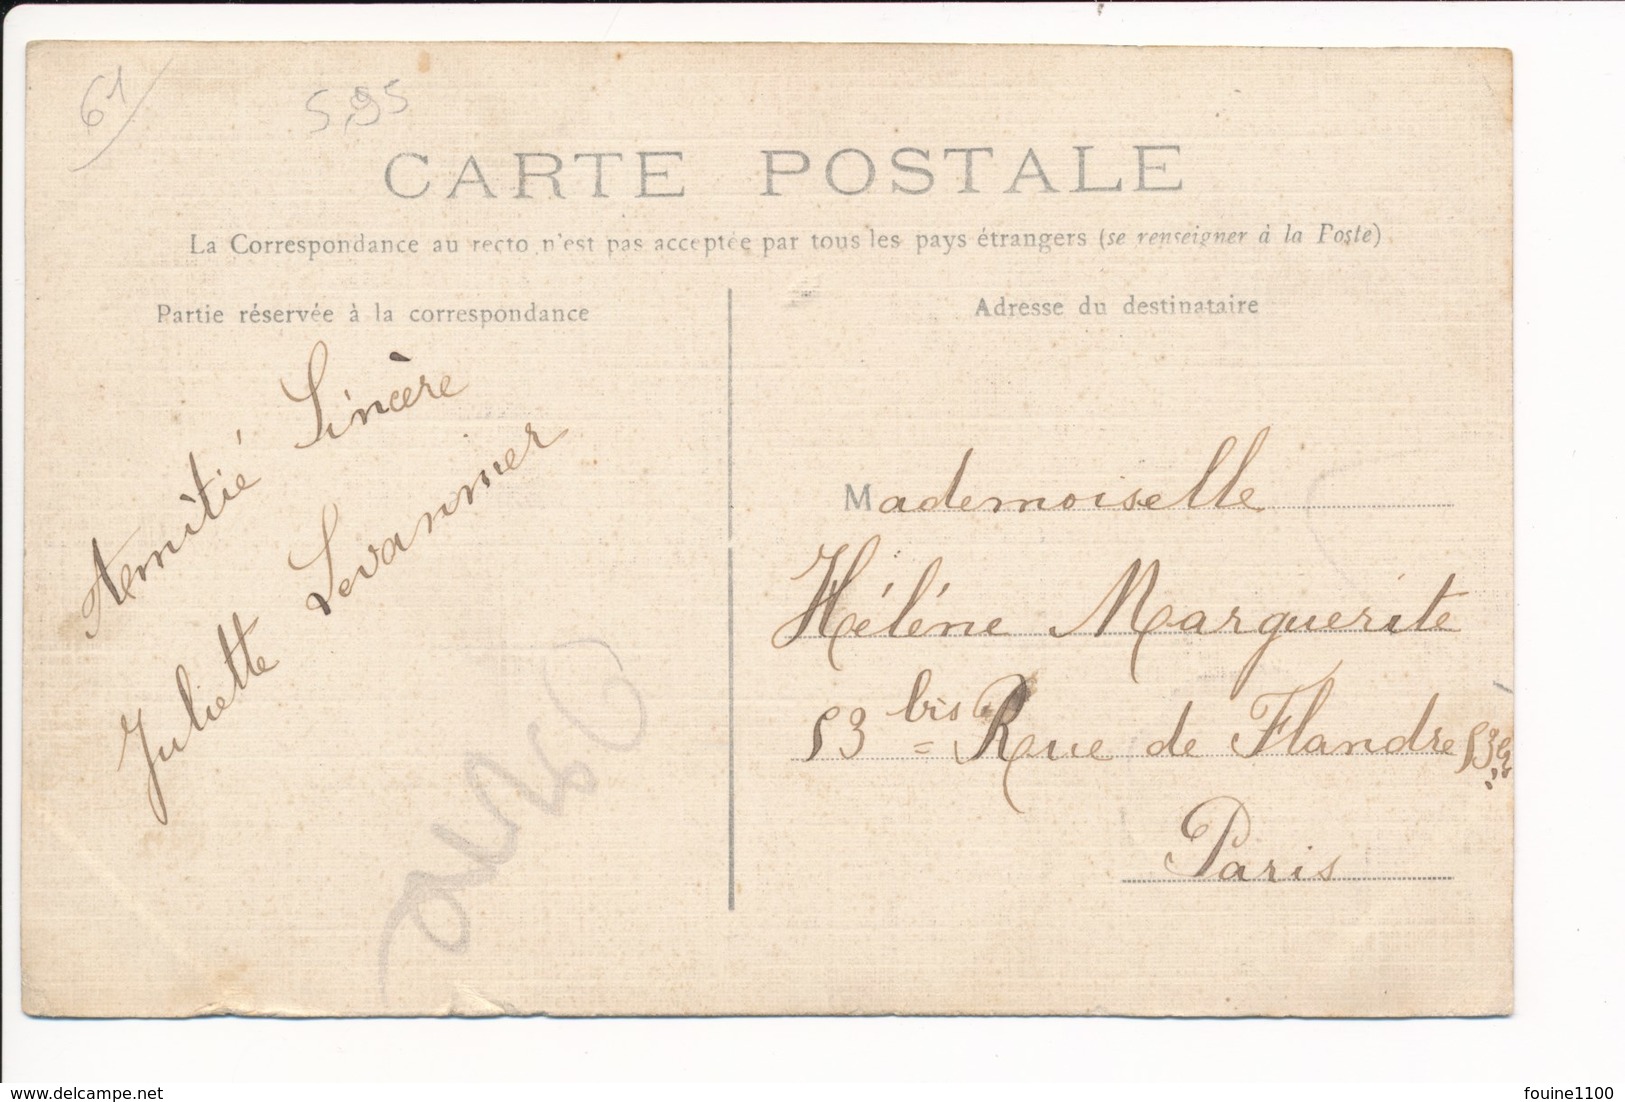 61
5,95
CARTE POSTALE
La Correspondance au recto n'est pas acceptée par tous les pays étrangers (se renseigner à la Poste)
Partie réservée à la correspondance
Amitié Sincère
Juliette Levanomer
Adresse du destinataire
Mademoiselle
Hélène Marguerite
53 bis = Rue de Flandre 53
Paris
www.delcampe.net
fouine1100